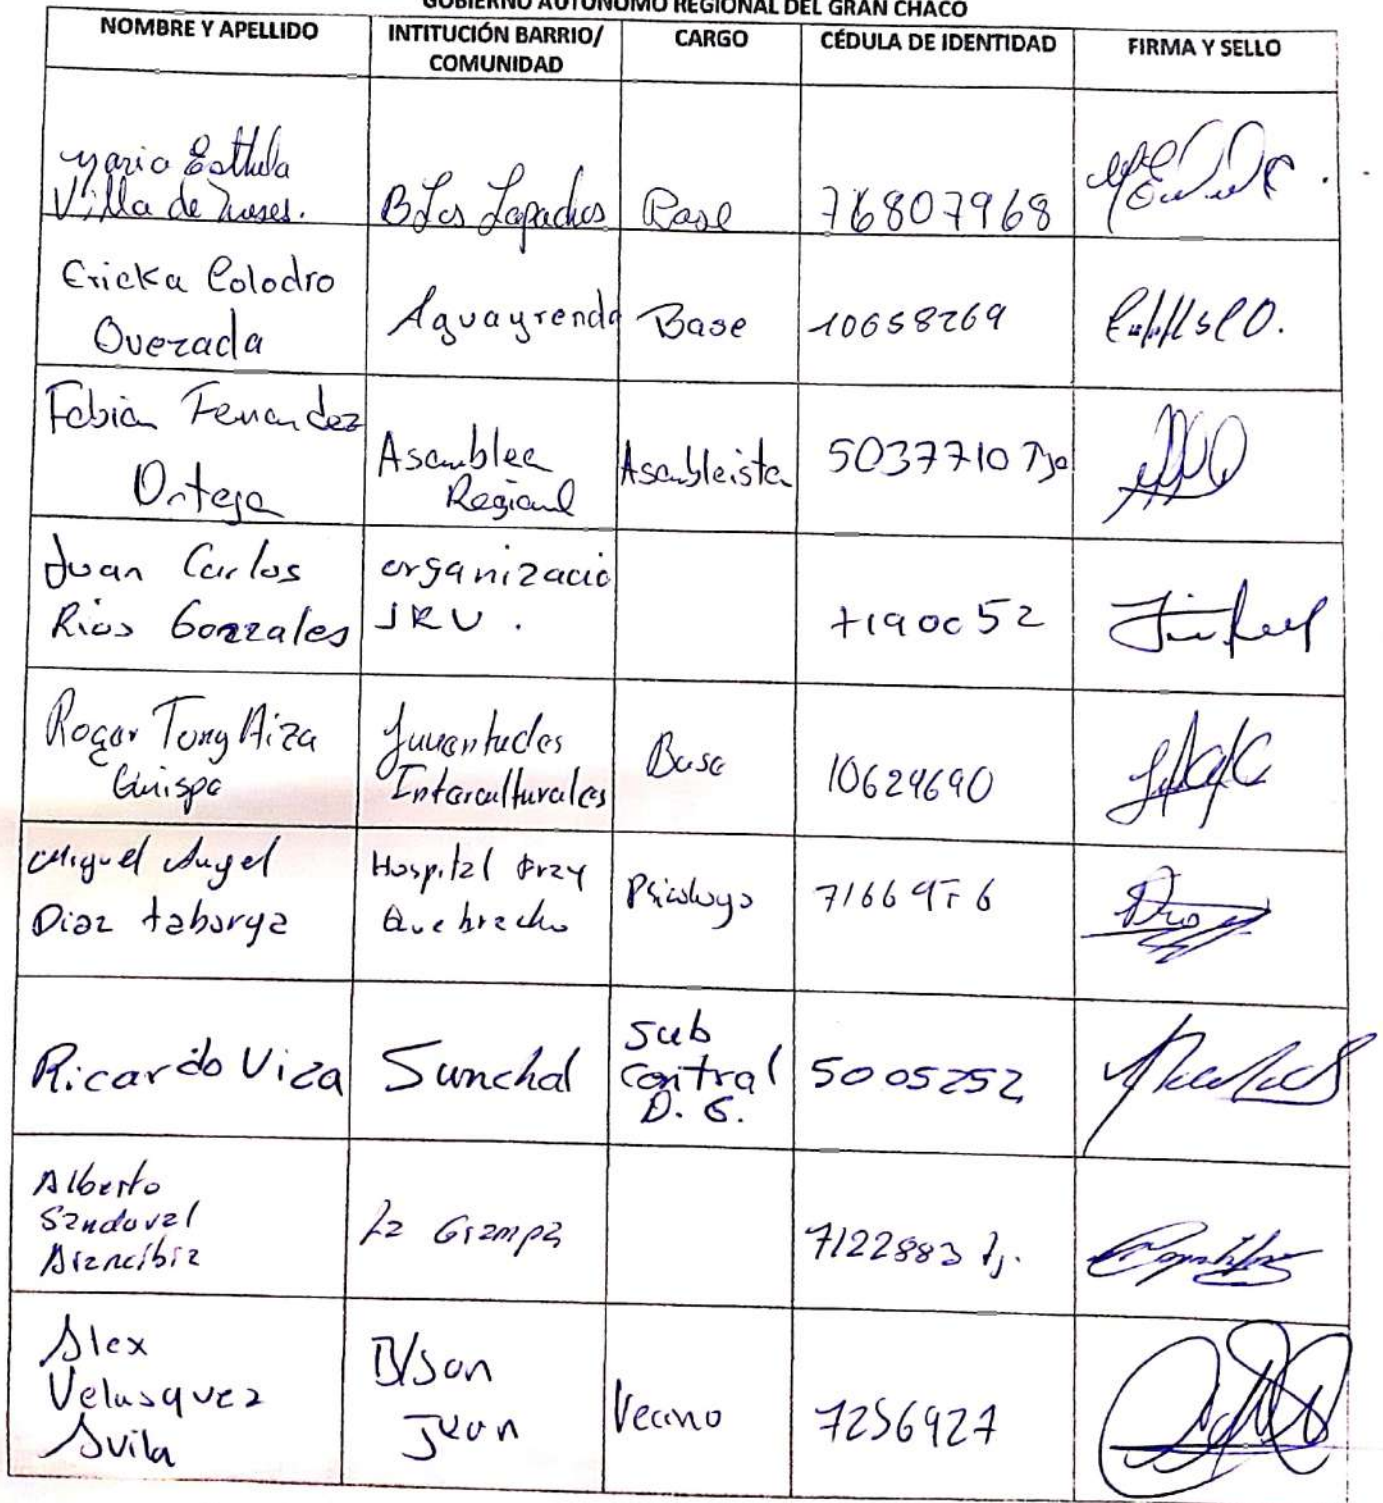 GOBIERNO AUTONOMO REGIONAL DEL GRAN CHACO
NOMBRE Y APELLIDO
INTITUCIÓN BARRIO/
COMUNIDAD
CARGO
CÉDULA DE IDENTIDAD
FIRMA Y SELLO
Maria
Villa de
B Los Lapachos
Base
76807968
Ericka Colodro
Quezada
Aguayrenda
Base
10658269
Fabian Fernandez
Ortega
Asamblea
Regional
Asambleista
5037710 Tja
Juan Carlos
Rios Gonzales
organizacio
JRV .
7190052
Roger Tony Aiza
Quispe
Juventudes
Interculturales
Base
10624690
Miguel Angel
Diaz taborga
Hospital Fray
Quebracho
Psicologo
Ricardo Viza
Sunchal
Sub
central
D. G.
5005252
Alberto
Sandoval
Arancibia
La Grampa
7122883 Tj.
Alex
Velasquez
Avila
B/San
Juan
Vecino
7256927